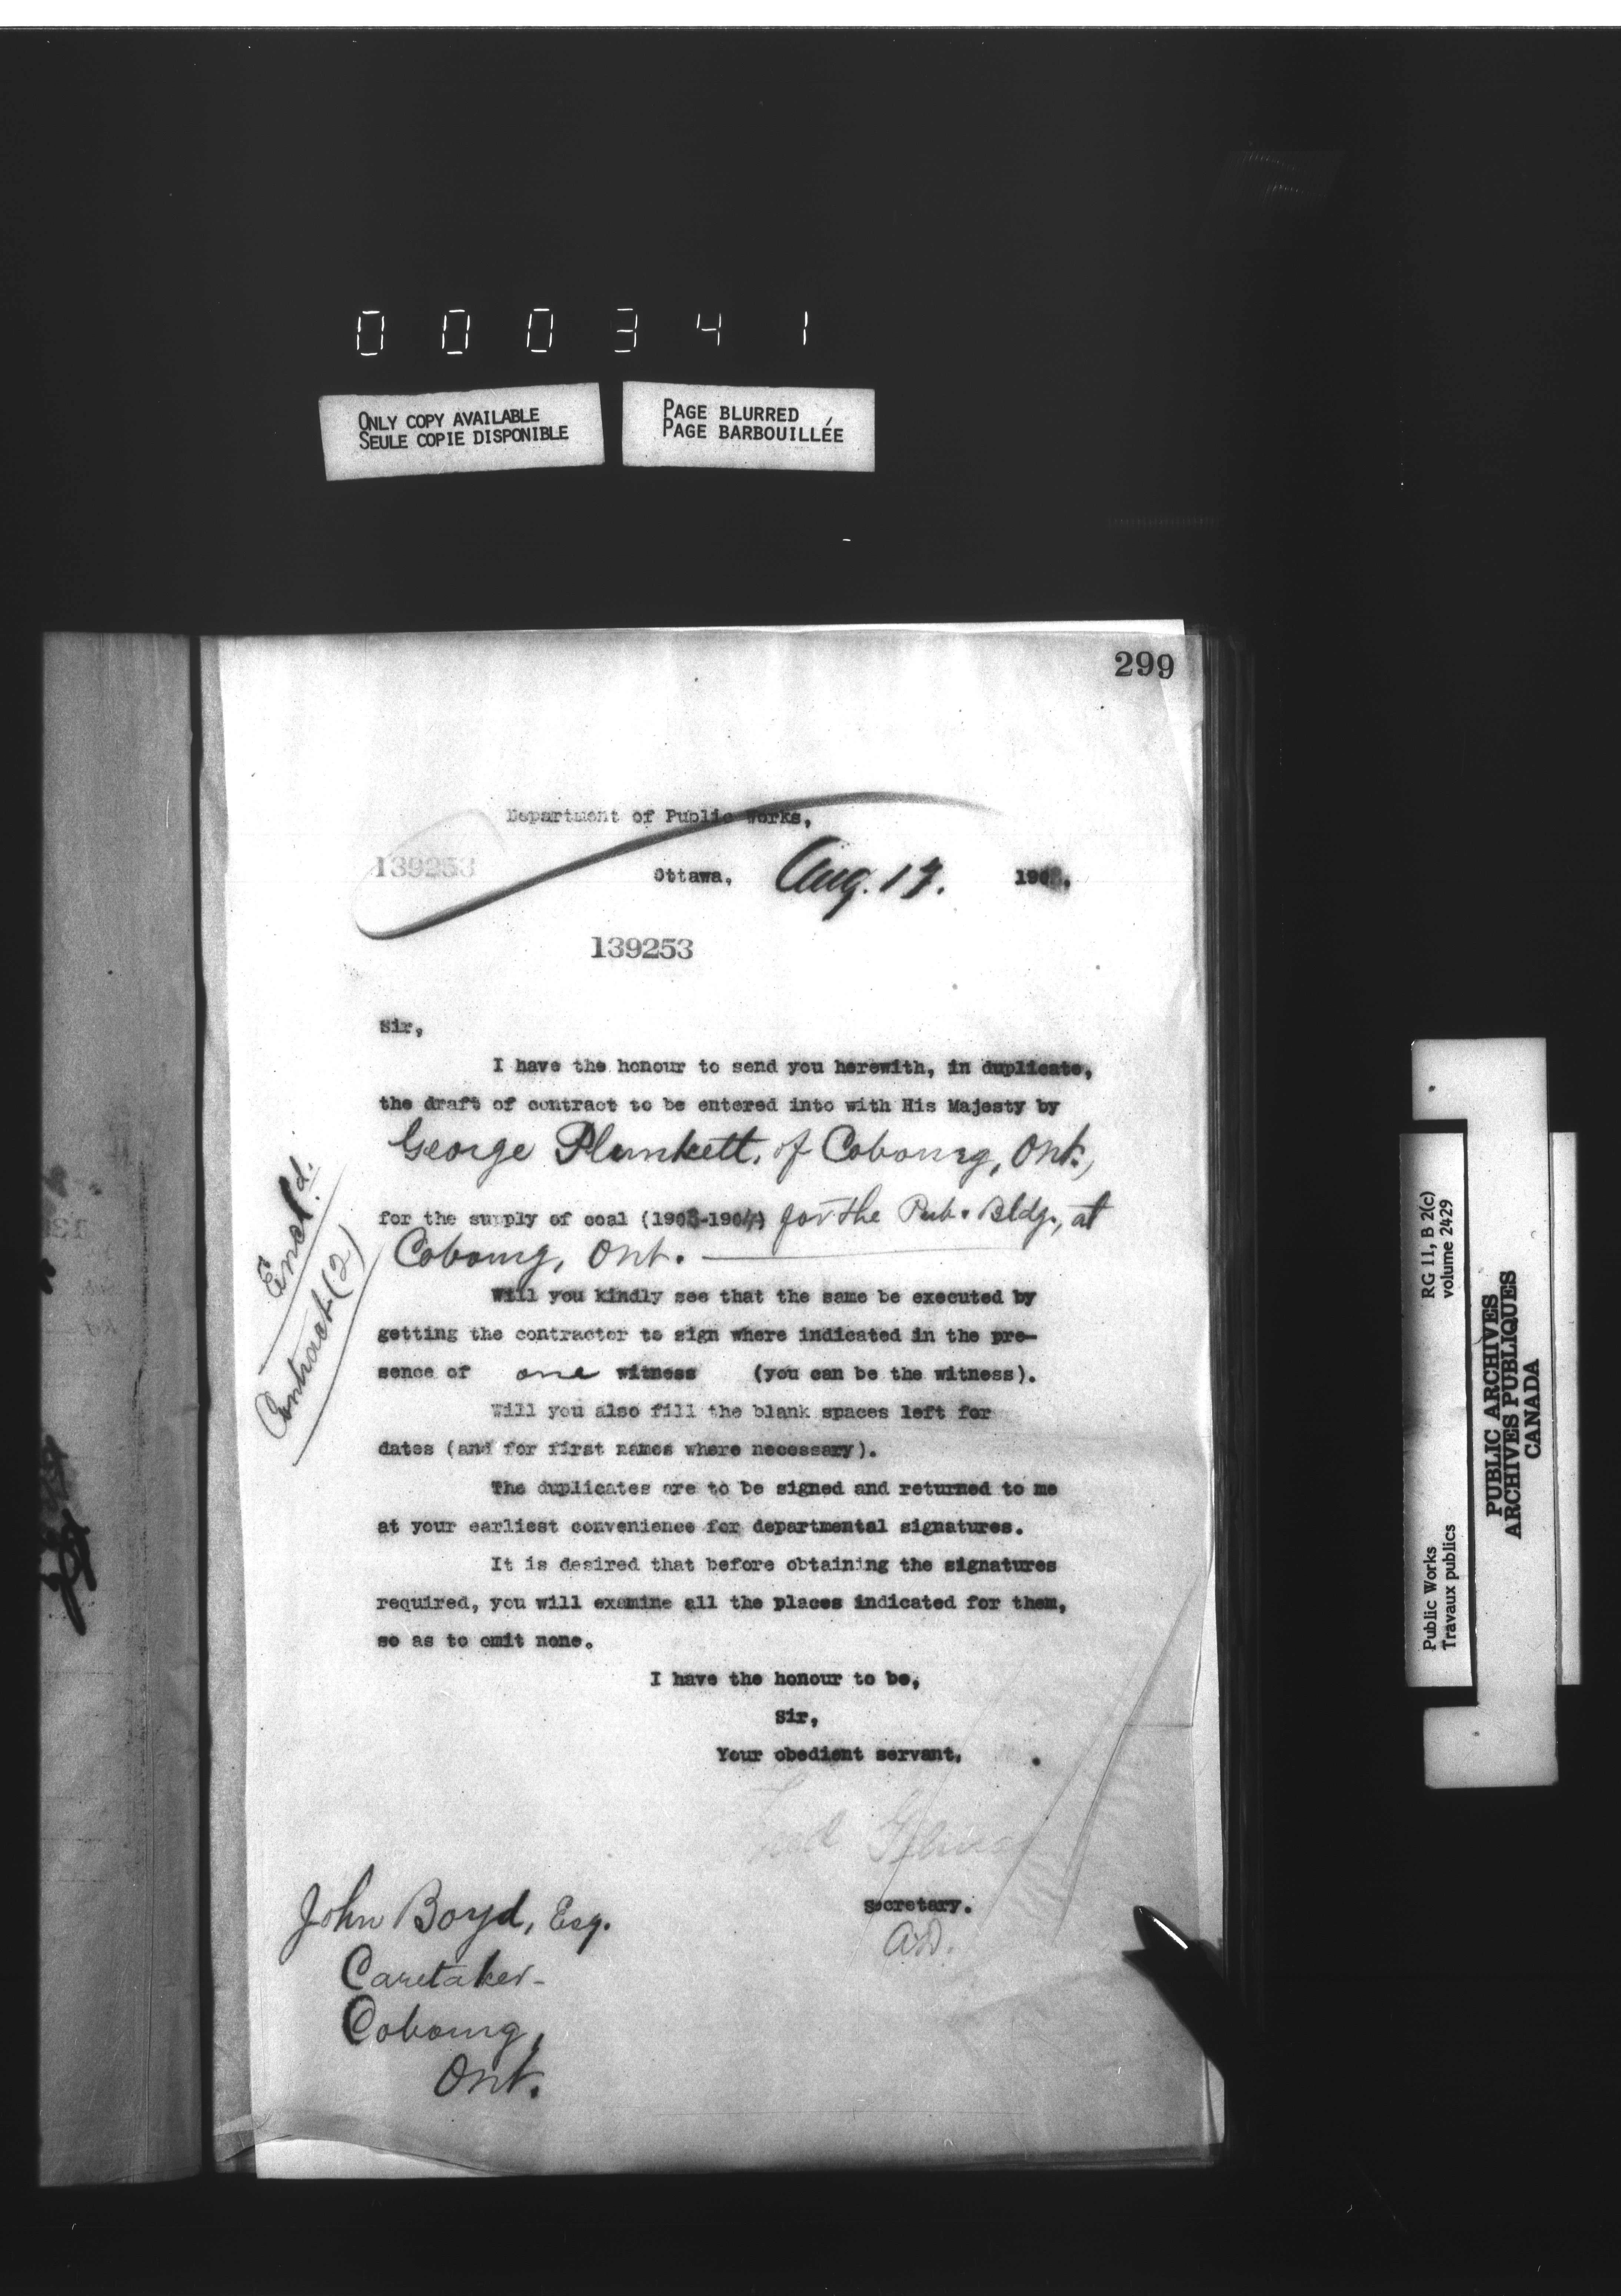 0 0 0 3 4 1
ONLY COPY AVAILABLE
SEULE COPIE DISPONIBLE
PAGE BLURRED
PAGE BARBOUILLÉE
299
Department of Public Works,
139253
Ottawa, Aug. 17. 1903.
139253
Sir,
I have the honour to send you herewith, in duplicate,
the draft of contract to be entered into with His Majesty by
George Plunkett, of Cobourg, Ont.,
for the supply of coal (1903-1904) for the Pub. Bldg., at
Cobourg, Ont.
Encl'd.
Contract (2)
Will you kindly see that the same be executed by
getting the contractor to sign where indicated in the pre-
sence of one witness (you can be the witness).
Will you also fill the blank spaces left for
dates (and for first names where necessary).
The duplicates are to be signed and returned to me
at your earliest convenience for departmental signatures.
It is desired that before obtaining the signatures
required, you will examine all the places indicated for them,
so as to omit none.
I have the honour to be,
Sir,
Your obedient servant,
Secretary.
John Boyd, Esq.
Caretaker-
Cobourg,
Ont.
Public Works
Travaux publics
RG 11, B 2(c)
volume 2429
PUBLIC ARCHIVES
ARCHIVES PUBLIQUES
CANADA